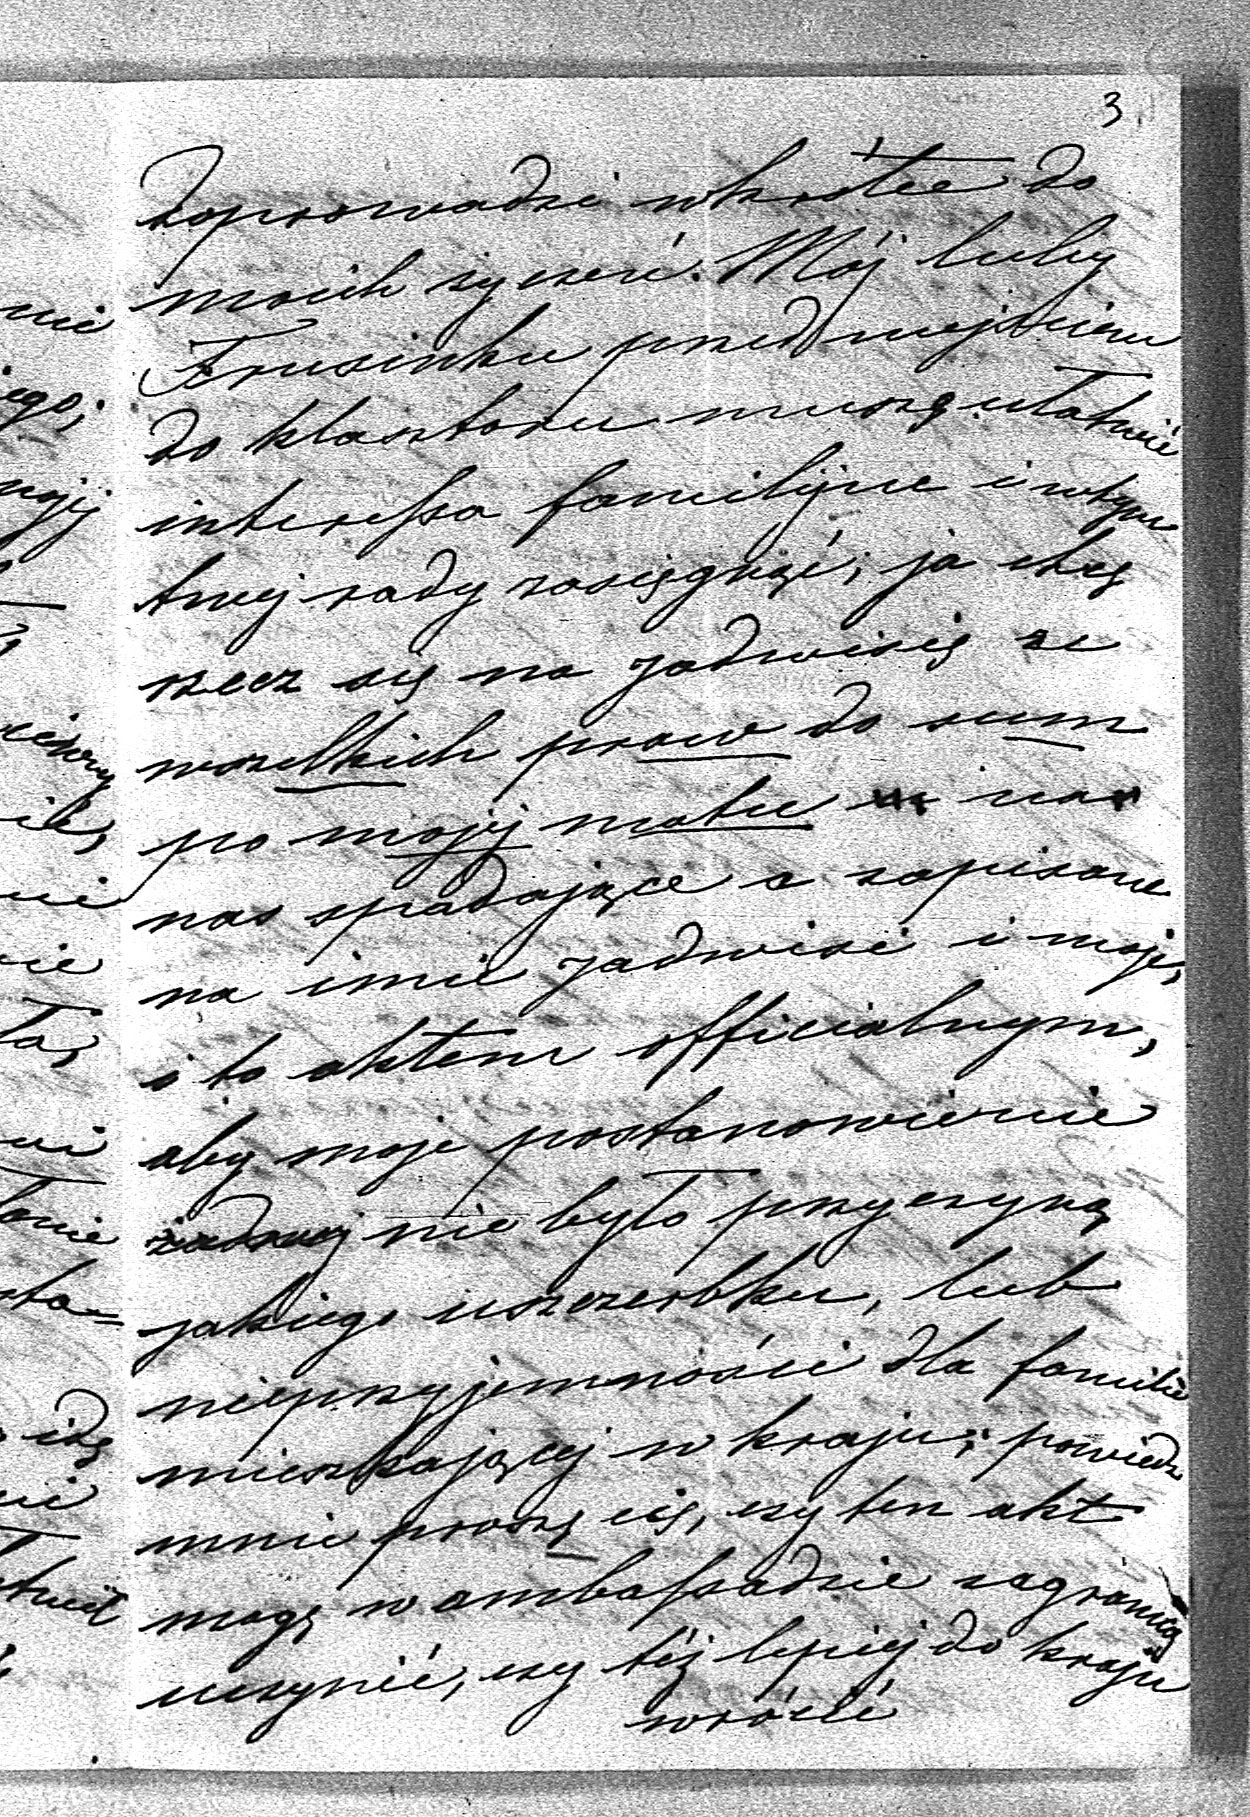 3
doprowadzi wkrótce do
moich życzeń. Mój luby
Frusinku przed wejściem
do klasztoru muszę ułatwić
interessa familijne i w tym
twej rady zasięgnąć; ja chcę
rzecz się na Jadwisię ze
wszelkich praw do sum
po mojej matce na
nas spadające a zapisane
na imie Jadwisi i moje,
i to aktem officialnym,
aby moje postanowienie
żadnej nie było przyczyną
jakiego uszczerbku, lub
nieprzyjemności dla familii
mieszkającej w kraju; powiedz
mnie proszę cię, czy ten akt
mogę w ambassadzie zagranicą
uczynić, czy téż lepiej do kraju
wrócić